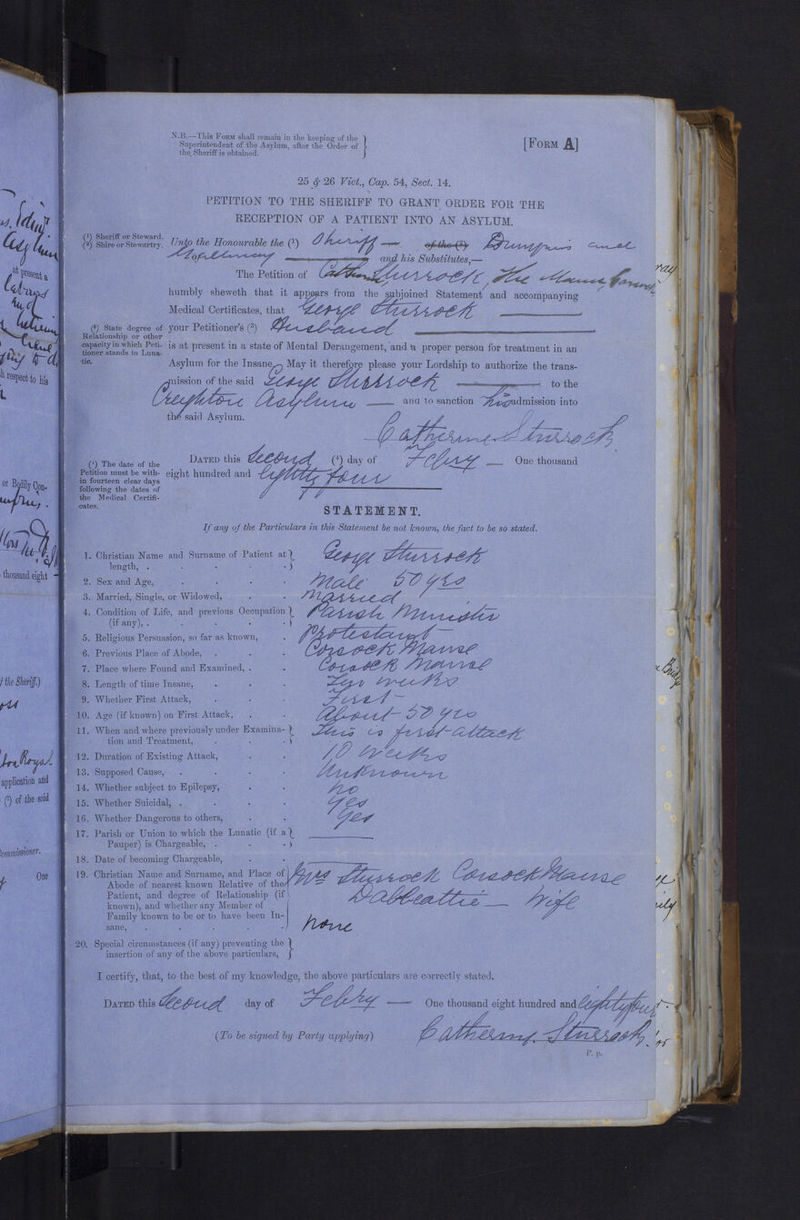 N.B.—This Form shall remain in the keeping of the
Superintendent of the Asylum, after the Order of
the Sheriff is obtained.
[Form A]
25 & 26 Vict., Cap. 54, Sect. 14.
PETITION TO THE SHERIFF TO GRANT ORDER FOR THE
RECEPTION OF A PATIENT INTO AN ASYLUM.
(¹) Sheriff or Steward.
(²) Shire or Stewartry.
Unto the Honourable the (¹) Sheriff — of the (²) Dumfries and
Galloway — and his Substitutes,—
The Petition of Catherine Sturrock, The Manse, Corsock
humbly sheweth that it appears from the subjoined Statement and accompanying
Medical Certificates, that George Sturrock
(³) State degree of
Relationship or other
capacity in which Peti-
tioner stands to Luna-
tic.
your Petitioner's (³) Husband
is at present in a state of Mental Derangement, and a proper person for treatment in an
Asylum for the Insane. May it therefore please your Lordship to authorize the trans-
mission of the said George Sturrock — to the
Creighton Asylum — and to sanction his admission into
the said Asylum.
Catherine Sturrock
(⁴) The date of the
Petition must be with-
in fourteen clear days
following the dates of
the Medical Certifi-
cates.
Dated this Second (⁴) day of Febry — One thousand
eight hundred and Eighty four
STATEMENT.
If any of the Particulars in this Statement be not known, the fact to be so stated.
1. Christian Name and Surname of Patient at
length, . George Sturrock
2. Sex and Age, Male 50 yrs
3. Married, Single, or Widowed, Married
4. Condition of Life, and previous Occupation
(if any), . Parish Minister
5. Religious Persuasion, so far as known, Protestant
6. Previous Place of Abode, Corsock Manse
7. Place where Found and Examined, Corsock Manse
8. Length of time Insane, Ten weeks
9. Whether First Attack, First
10. Age (if known) on First Attack, About 50 yrs
11. When and where previously under Examina-
tion and Treatment, This is first attack
12. Duration of Existing Attack, 10 Weeks
13. Supposed Cause, Unknown
14. Whether subject to Epilepsy, No
15. Whether Suicidal, . Yes
16. Whether Dangerous to others, Yes
17. Parish or Union to which the Lunatic (if a
Pauper) is Chargeable, . —
18. Date of becoming Chargeable,
19. Christian Name and Surname, and Place of
Abode of nearest known Relative of the
Patient, and degree of Relationship (if
known), and whether any Member of
Family known to be or to have been In-
sane,
Mrs Sturrock Corsock Manse
Dalbeattie — Wife
None
20. Special circumstances (if any) preventing the
insertion of any of the above particulars,
I certify, that, to the best of my knowledge, the above particulars are correctly stated.
Dated this Second day of Febry — One thousand eight hundred and Eighty four
(To be signed by Party applying) Catherine Sturrock
P. p.